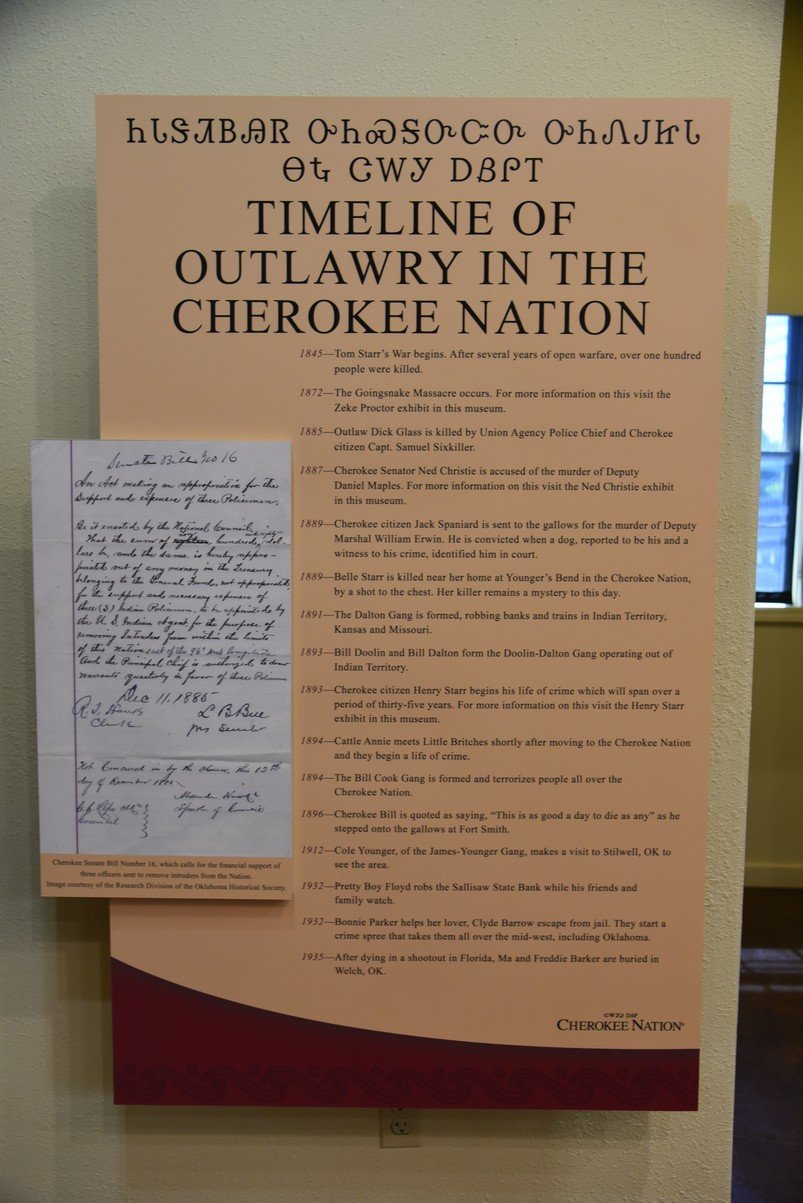 ᏂᏓᎦᏘᏴᎯᏒ ᎤᏂᏍᎦᏅᏨᏅ ᎤᏂᏁᎫᏥᏓ
ᎾᎿ ᏣᎳᎩ ᎠᏰᎵᎢ
TIMELINE OF
OUTLAWRY IN THE
CHEROKEE NATION
1845—Tom Starr's War begins. After several years of open warfare, over one hundred
people were killed.
1872—The Goingsnake Massacre occurs. For more information on this visit the
Zeke Proctor exhibit in this museum.
1885—Outlaw Dick Glass is killed by Union Agency Police Chief and Cherokee
citizen Capt. Samuel Sixkiller.
1887—Cherokee Senator Ned Christie is accused of the murder of Deputy
Daniel Maples. For more information on this visit the Ned Christie exhibit
in this museum.
1889—Cherokee citizen Jack Spaniard is sent to the gallows for the murder of Deputy
Marshal William Erwin. He is convicted when a dog, reported to be his and a
witness to his crime, identified him in court.
1889—Belle Starr is killed near her home at Younger's Bend in the Cherokee Nation,
by a shot to the chest. Her killer remains a mystery to this day.
1891—The Dalton Gang is formed, robbing banks and trains in Indian Territory,
Kansas and Missouri.
1893—Bill Doolin and Bill Dalton form the Doolin-Dalton Gang operating out of
Indian Territory.
1893—Cherokee citizen Henry Starr begins his life of crime which will span over a
period of thirty-five years. For more information on this visit the Henry Starr
exhibit in this museum.
1894—Cattle Annie meets Little Britches shortly after moving to the Cherokee Nation
and they begin a life of crime.
1894—The Bill Cook Gang is formed and terrorizes people all over the
Cherokee Nation.
1896—Cherokee Bill is quoted as saying, "This is as good a day to die as any" as he
stepped onto the gallows at Fort Smith.
1912—Cole Younger, of the James-Younger Gang, makes a visit to Stilwell, OK to
see the area.
1932—Pretty Boy Floyd robs the Sallisaw State Bank while his friends and
family watch.
1932—Bonnie Parker helps her lover, Clyde Barrow escape from jail. They start a
crime spree that takes them all over the mid-west, including Oklahoma.
1935—After dying in a shootout in Florida, Ma and Freddie Barker are buried in
Welch, OK.
Senate Bill No 16
An Act making an appropriation for the
Support and expenses of three Policemen.
Be it enacted by the National Council
That the sum of hundred dol-
lars be, and the same is hereby appro-
priated out of any money in the Treasury
belonging to the General Fund, not appropriated,
for the support and necessary expenses of
three (3) Indian Policemen, to be appointed by
the U.S. Indian Agent for the purpose of
removing Intruders from within the limits
of this Nation east of the 96° West Longitude
And the Principal Chief is authorized to draw
warrants quarterly in favor of these Policemen
Dec 11, 1885
Clerk
Not Concurred in by the House, this 12th
day of December 1885
Speaker of Council
Council
Cherokee Senate Bill Number 16, which calls for the financial support of
three officers sent to remove intruders from the Nation.
Image courtesy of the Research Division of the Oklahoma Historical Society.
ᏣᎳᎩ ᎠᏰᎵ
CHEROKEE NATION®